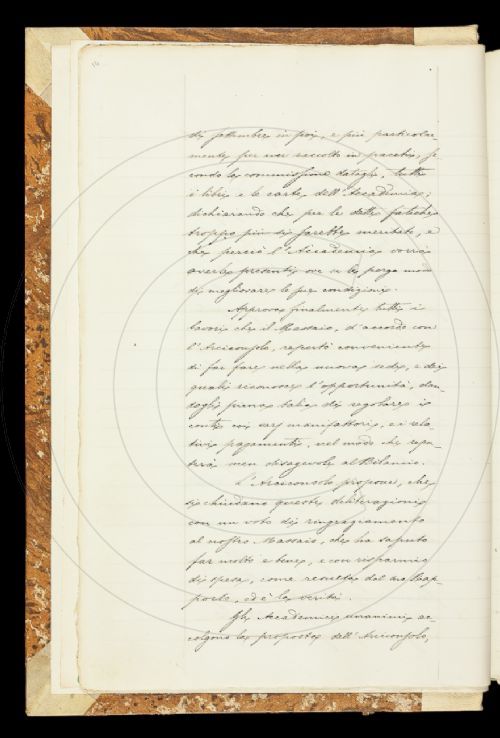 di settembre in poi, e più particolar
mente per aver raccolto in pacchi, se
condo la commissione datagli, tutti
i libri e le carte dell'Accademia;
dichiarando che per le dette fatiche
troppo più si sarebbe meritato, e
che perciò l'Accademia vorrà
averlo presente ove se le porga modo
di migliorare le sue condizioni.
Approva finalmente tutti i
lavori che il Massaio, d'accordo con
l'Arciconsolo, reputò conveniente
di far fare nella nuova sede, e dei
quali riconosce l'opportunità, dan-
dogli piena balìa di regolare i
conti coi vari manifattori, e i rela-
tivi pagamenti, nel modo che repu-
terà men disagevole al Bilancio.
L'Arciconsolo propone, che
si chiudano queste deliberazioni
con un voto di ringraziamento
al nostro Massaio, che ha saputo
far molto e bene, e con risparmio
di spesa, come resulta dal suo Rap-
porto, ed è la verità.
Gli Accademici unanimi ac-
colgono la proposta dell'Arciconsolo,